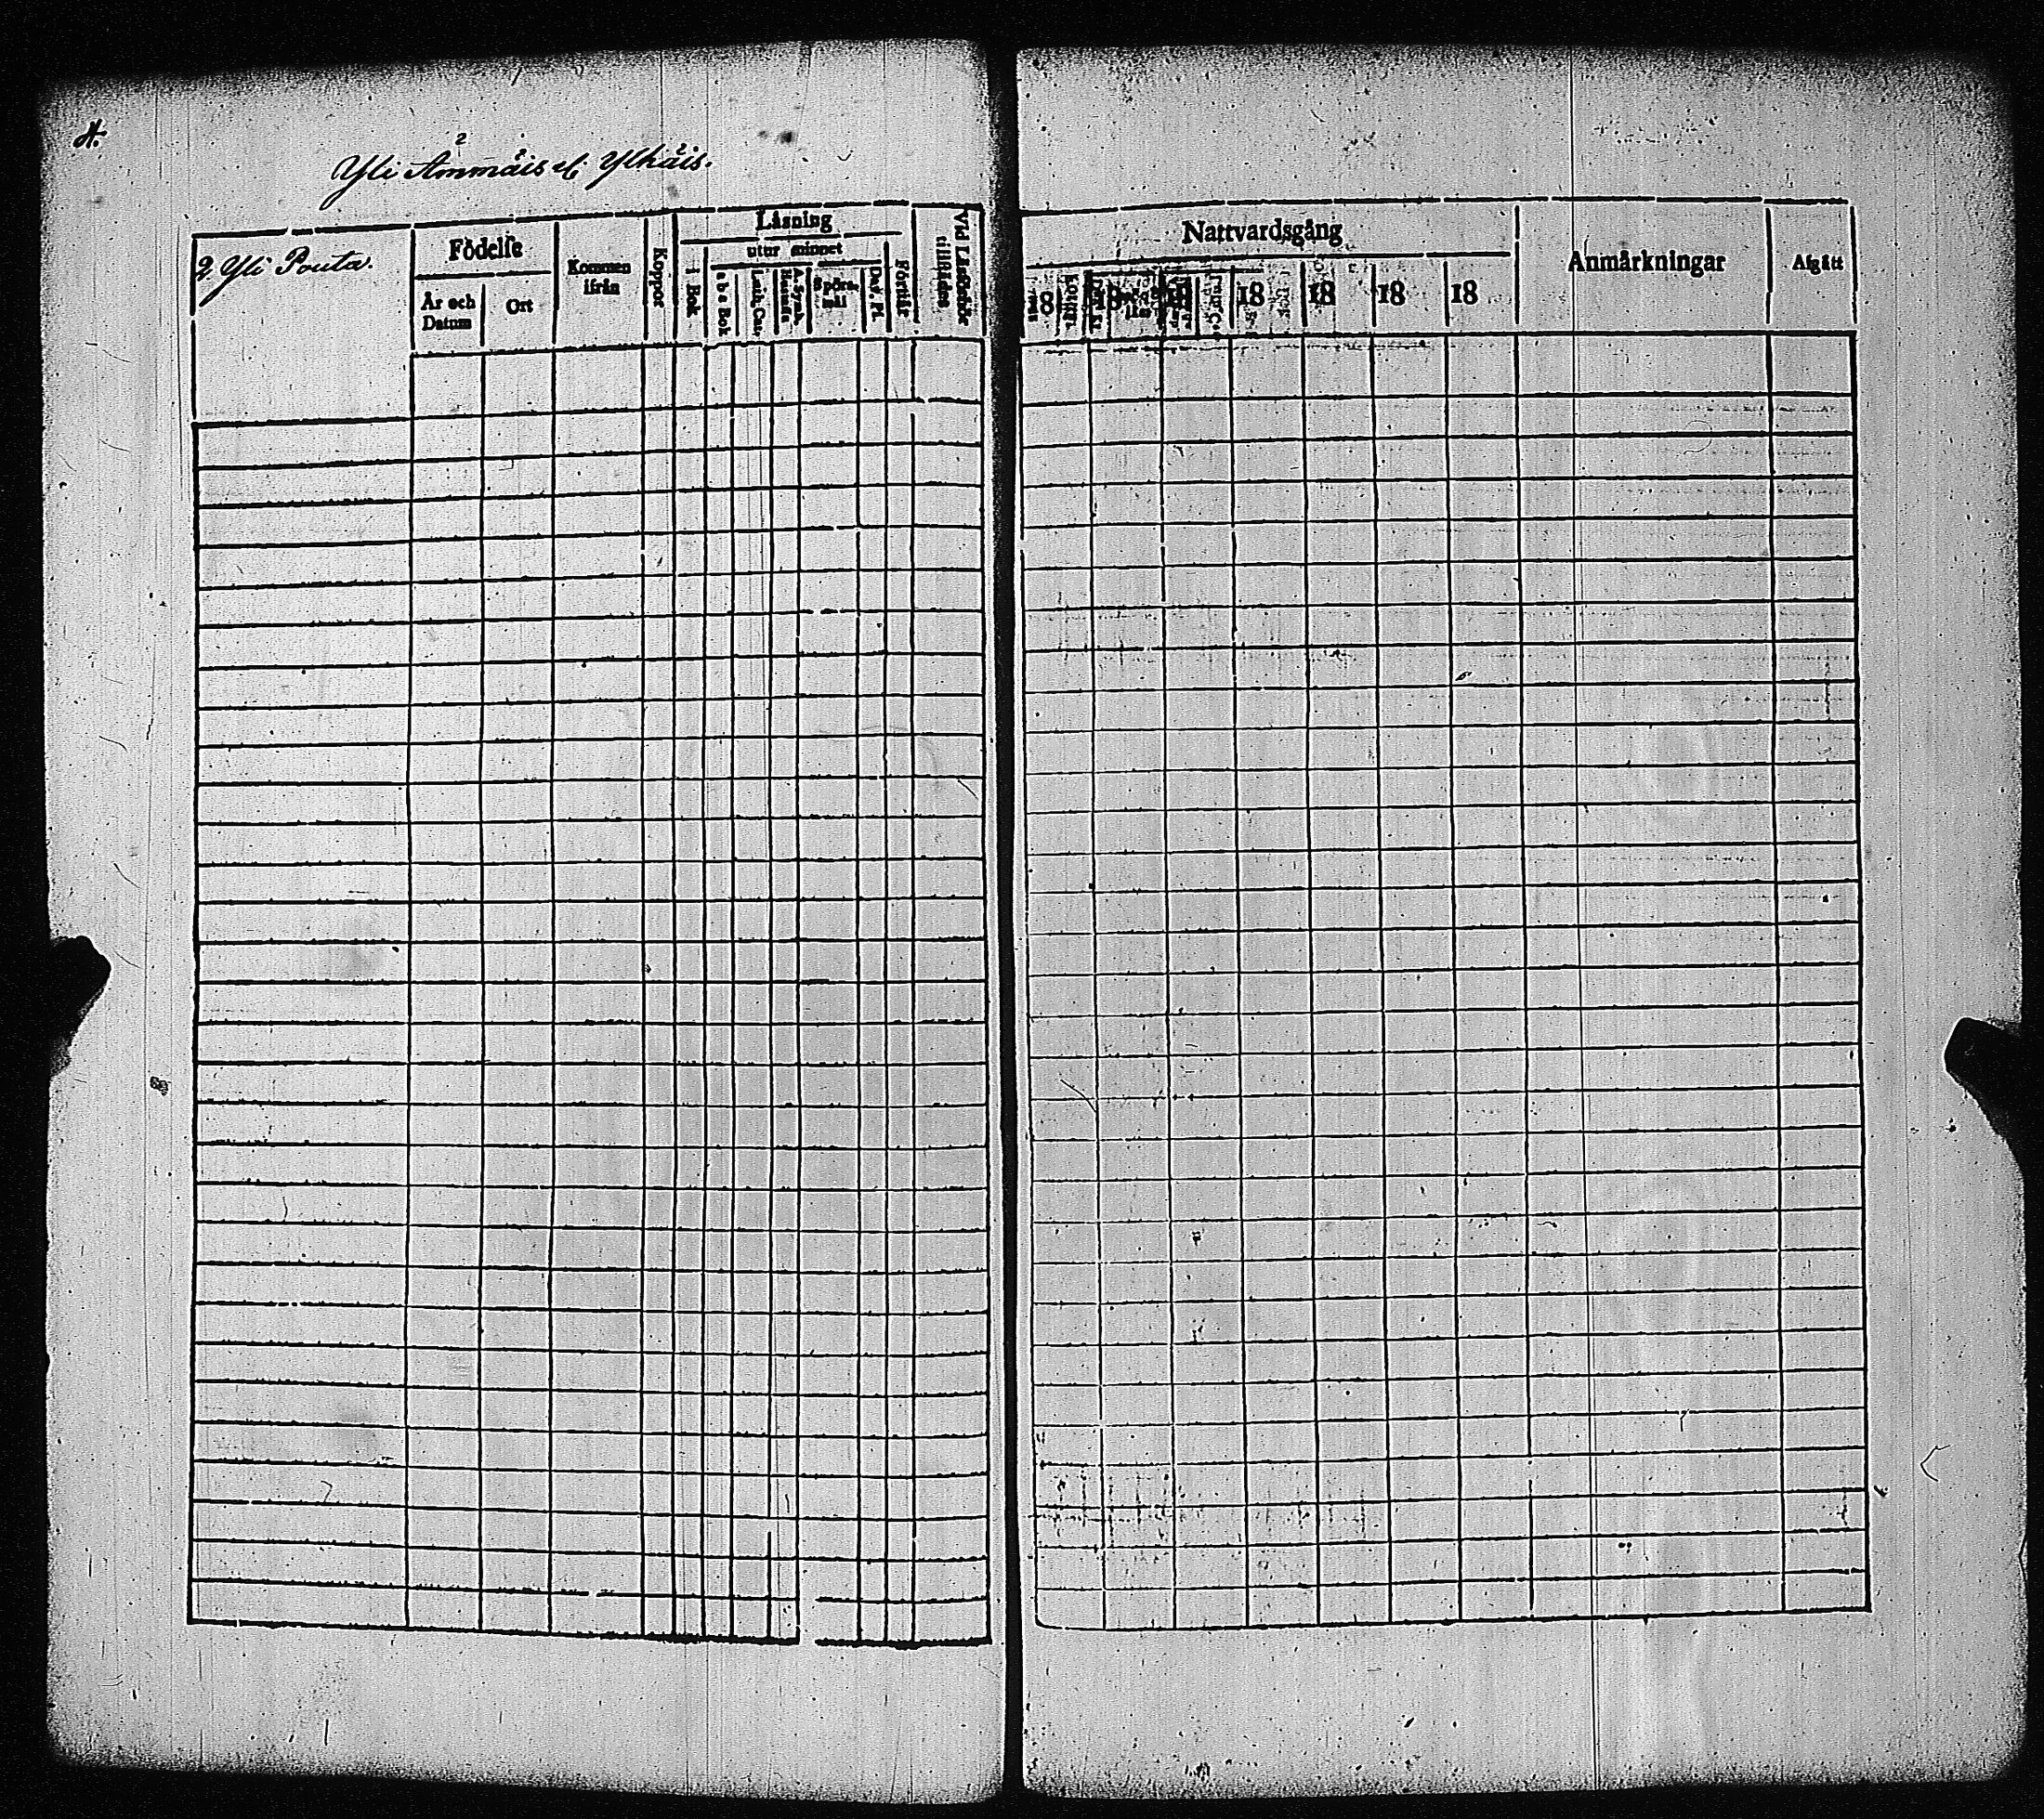 Yli Ämmäis el Ylhäis.
9. Yli Pouta.
Födelse
År och Datum
Ort
Kommen ifrån
Koppor
Läsning
i Bok
utur minnet
a b c Bok
Luth. Cat.
A. Symb.
Hustafla
Spörsmål
Dav. Ps.
Förstår
Vid Läsförhör tillstädes
Nattvardsgång
18 18 18 18 18 18 18
Anmärkningar
Afgått